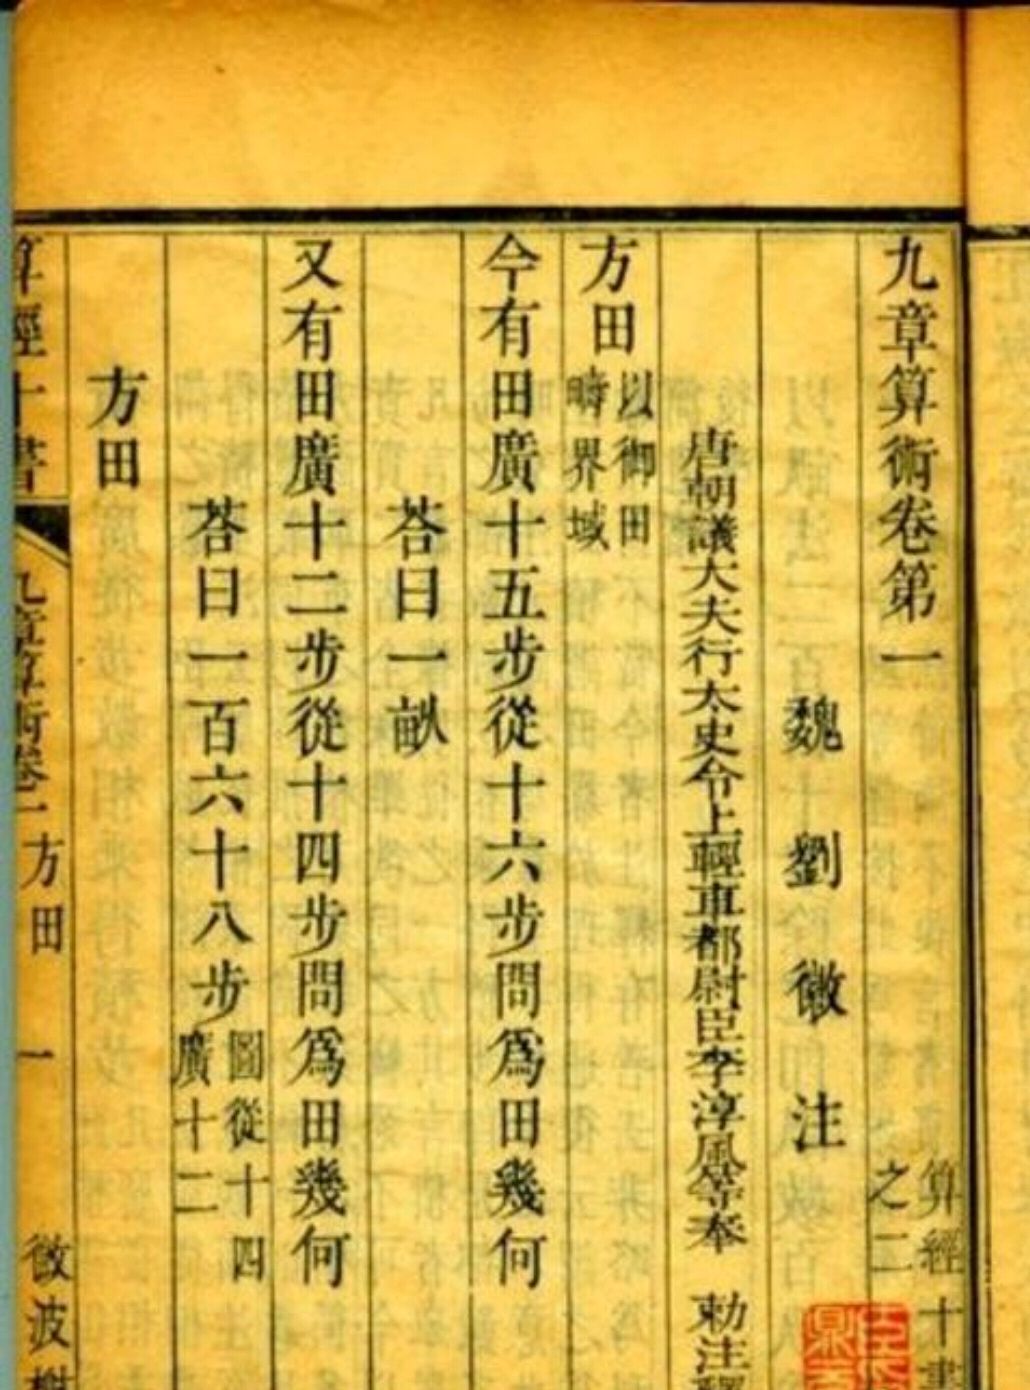 九章算術卷第一
算經十書
之二
魏劉徽注
唐朝議大夫行太史令上輕車都尉臣李淳風等奉 勅注釋
方田
以御田
疇界域
今有田廣十五步從十六步問爲田幾何
荅曰一畝
又有田廣十二步從十四步問爲田幾何
荅曰一百六十八步
圖從十四
廣十二
方田
算經十書
九章算術卷一
方田
一
微波榭